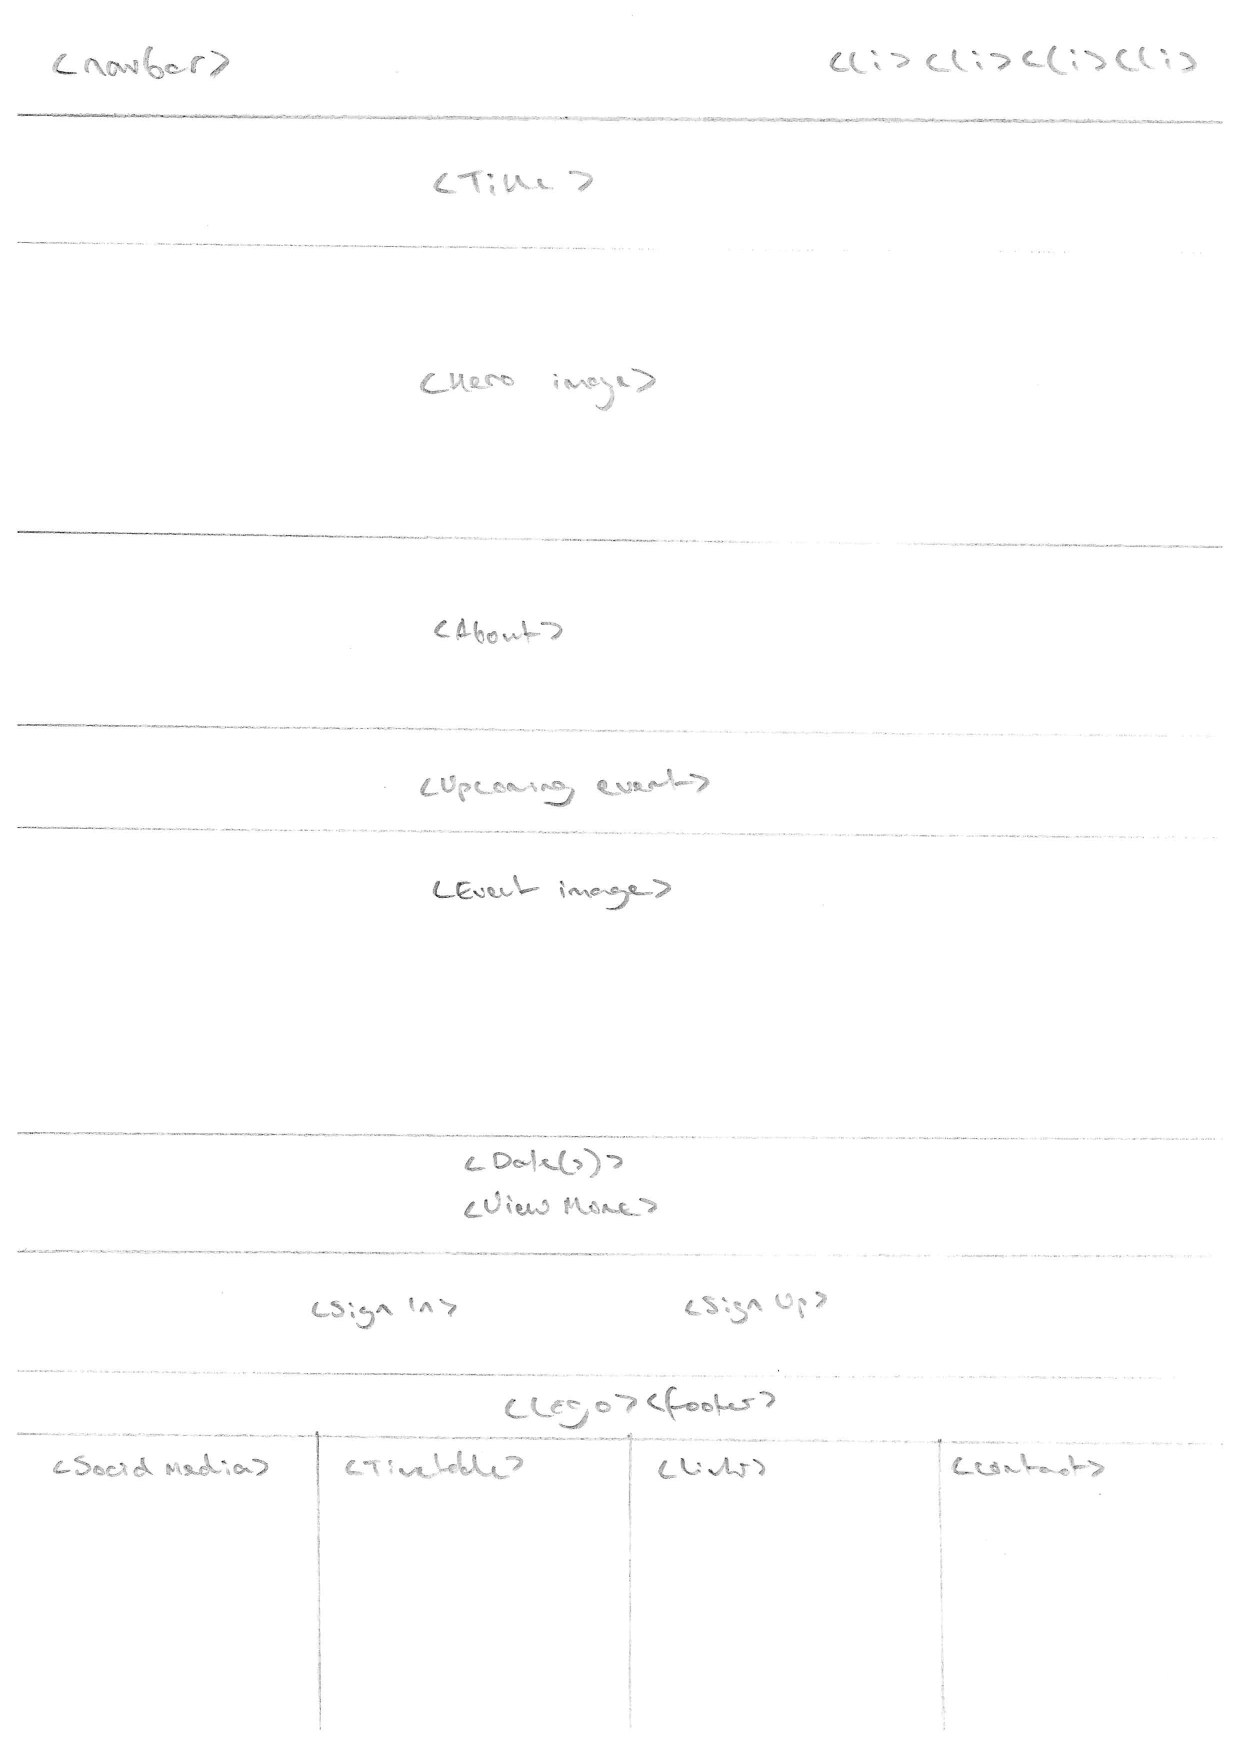 <navbar> <li><li><li><li>
<Title>
<Hero image>
<About>
<Upcoming event>
<Event image>
<Date(s)>
<View More>
<Sign In> <Sign Up>
<Logo><footer>
<Social Media> <Timetable> <Links> <contact>